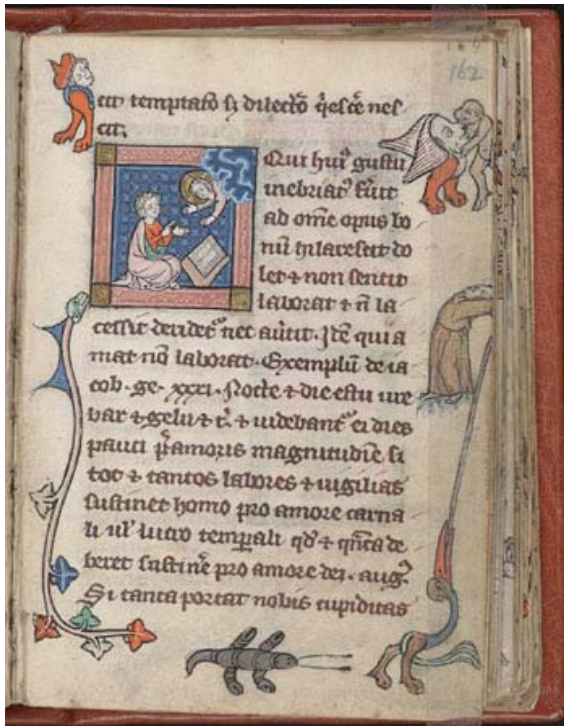 162
cit temptatō si dilectō q̇esce᷑ nes
cit.
Qui huı᷒ gustu
inebriat᷒ fuit
ad om̄e opus bo
nū hilarescit do
let ⁊ non sentit
laborat ⁊ n̄ la
cessit deridet᷑ nec aūtit. Itē qui a
mat nō laborat. Exemplū de ia
cob. ge. xxxi. Nocte ⁊ die estu ure
bar ⁊ gelu ⁊ c̄. ⁊ uidebant᷑ ei dies
pauci p̄ amoris magnitudīe. si
tot ⁊ tantos labores ⁊ uigilias
sustinet homo pro amore carna
li ul᷑ lucro temp̄ali. qd᷑ ⁊ qn̄ta de
beret sustinē pro amore dei. aug᷒
Si tanta portat nobis cupiditas